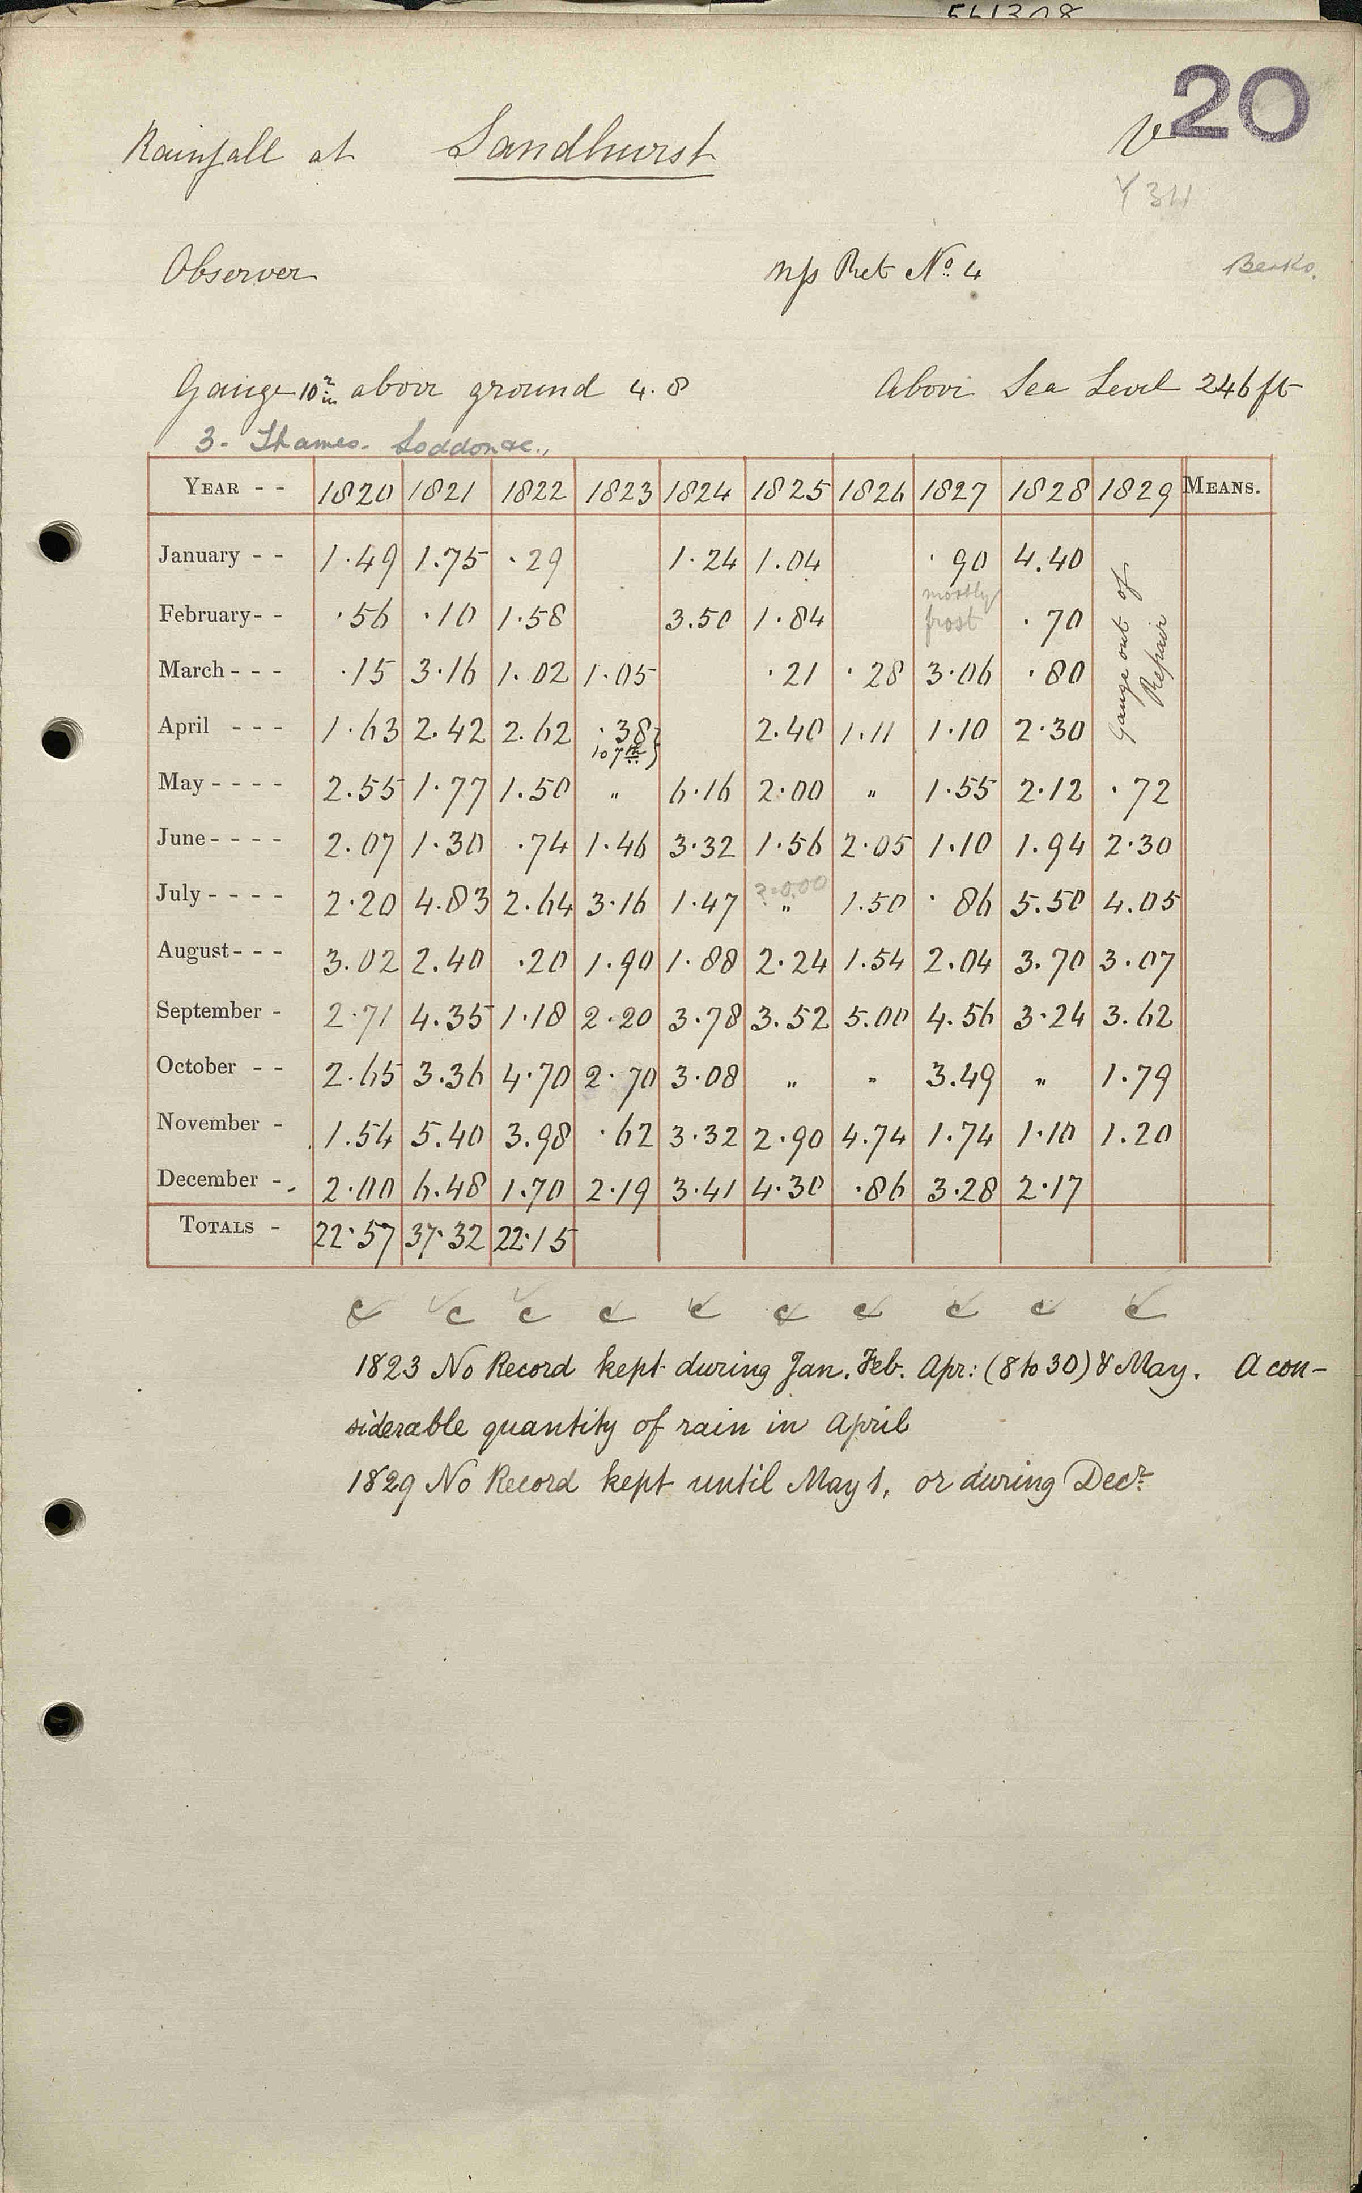 20
Rainfall at Sandhurst
Y 34
Observer Nº 4 Berks.
Gauge 10 in above ground 4.8 Above Sea Level 246 ft
3. Thames. Loddon &c.,
YEAR - - 1820 1821 1822 1823 1824 1825 1826 1827 1828 1829 MEANS.
January - - 1.49 1.75 .29 1.24 1.04 .90 4.40 Gauge out of Repair
February - - .56 .10 1.58 3.50 1.84 mostly frost .70
March - - - .15 3.16 1.02 1.05 .21 .28 3.06 .80
April - - - 1.63 2.42 2.62 .38 to 7th } 2.40 1.11 1.10 2.30
May - - - - 2.55 1.77 1.50 " 6.16 2.00 " 1.55 2.12 .72
June - - - - 2.07 1.30 .74 1.46 3.32 1.56 2.05 1.10 1.94 2.30
July - - - - 2.20 4.83 2.64 3.16 1.47 ? 0.00 " 1.50 .86 5.50 4.05
August - - - 3.02 2.40 .20 1.90 1.88 2.24 1.54 2.04 3.70 3.07
September - 2.71 4.35 1.18 2.20 3.78 3.52 5.00 4.56 3.24 3.62
October - - 2.65 3.36 4.70 2.70 3.08 " " 3.49 " 1.79
November - 1.54 5.40 3.98 .62 3.32 2.90 4.74 1.74 1.10 1.20
December - 2.00 6.48 1.70 2.19 3.41 4.30 .86 3.28 2.17
TOTALS - 22.57 37.32 22.15
c c c c c c c c c c
1823 No Record kept during Jan. Feb. Apr: (8 to 30) & May. A con-
siderable quantity of rain in April
1829 No Record kept until May 1, or during Decr